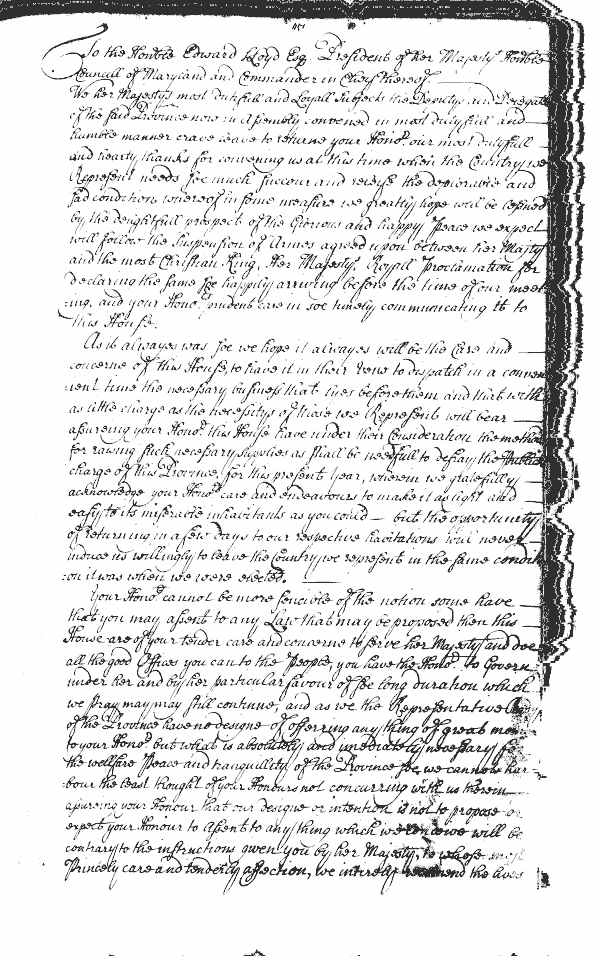 To the Honble Edward Lloyd Esq President of her Majestys Honble
Councill of Maryland and Commander in Chief thereof.
We her Majestys most dutifull and Loyall Subjects the Deputys and Delegates
of the said Province now in Assembly convened in most dutyfull and
humble manner crave leave to returne your Honor our most dutyfull
and hearty thanks for convening us at this time when the Country we
Represent needs soe much Succour and releife the deplorable and
sad condition whereof in some measure we greatly hope will be
by the delightfull prospect of the Glorious and happy Peace we expect
will follow the Suspension of Armes agreed upon between her Majty
and the most Christian King, Her Majestys Royall Proclamation for
declaring the same soe happily arriving before the time of our meet
ing, and your Honors prudent care in soe timely communicating it to
this House.
As it alwayes was soe we hope it alwayes will be the Care and
concerne of this House, to have it in their view to dispatch in a conven
ient time the necessary business that lies before them and that with
as little charge as the necessitys of those we Represent will bear
assureing your Honor this House have under their Consideration the method
for raising such necessary supplies as shall be needfull to defray the Publick
charge of this Province, for this present year, wherein we gratefully
acknowledge your Honors care and endeavours to make it as light and
easy to its miserable inhabitants as you could — but the opportunity
of returning in a few days to our respective habitations will never
induce us willingly to leave the Country we represent in the same condit
ion it was when we were elected.
Your Honor cannot be more sencible of the notion some have
that you may assent to any Law that may be proposed then this
House are of your tender care and concerne to serve her Majesty and doe
all the good Offices you can to the People, you have the Honor to Govern
under her and by her particular favour of soe long duration which
we pray may may still continue, and as we the Representative
of the Province have no designe of offerring any thing of great mom
to your Honor but what is absolutely and imediately necessary for
the wellfare Peace and tranquillity of the Province soe we cannot har
bour the least thought of your Honours not concurring with us therein
assureing your Honour that our designe or intention is not to propose or
expect your Honour to Assent to any thing which we conceive will be
contrary to the instructions given you by her Majesty, to whose most
Princely care and tenderly affection, we intirely recommend the lives